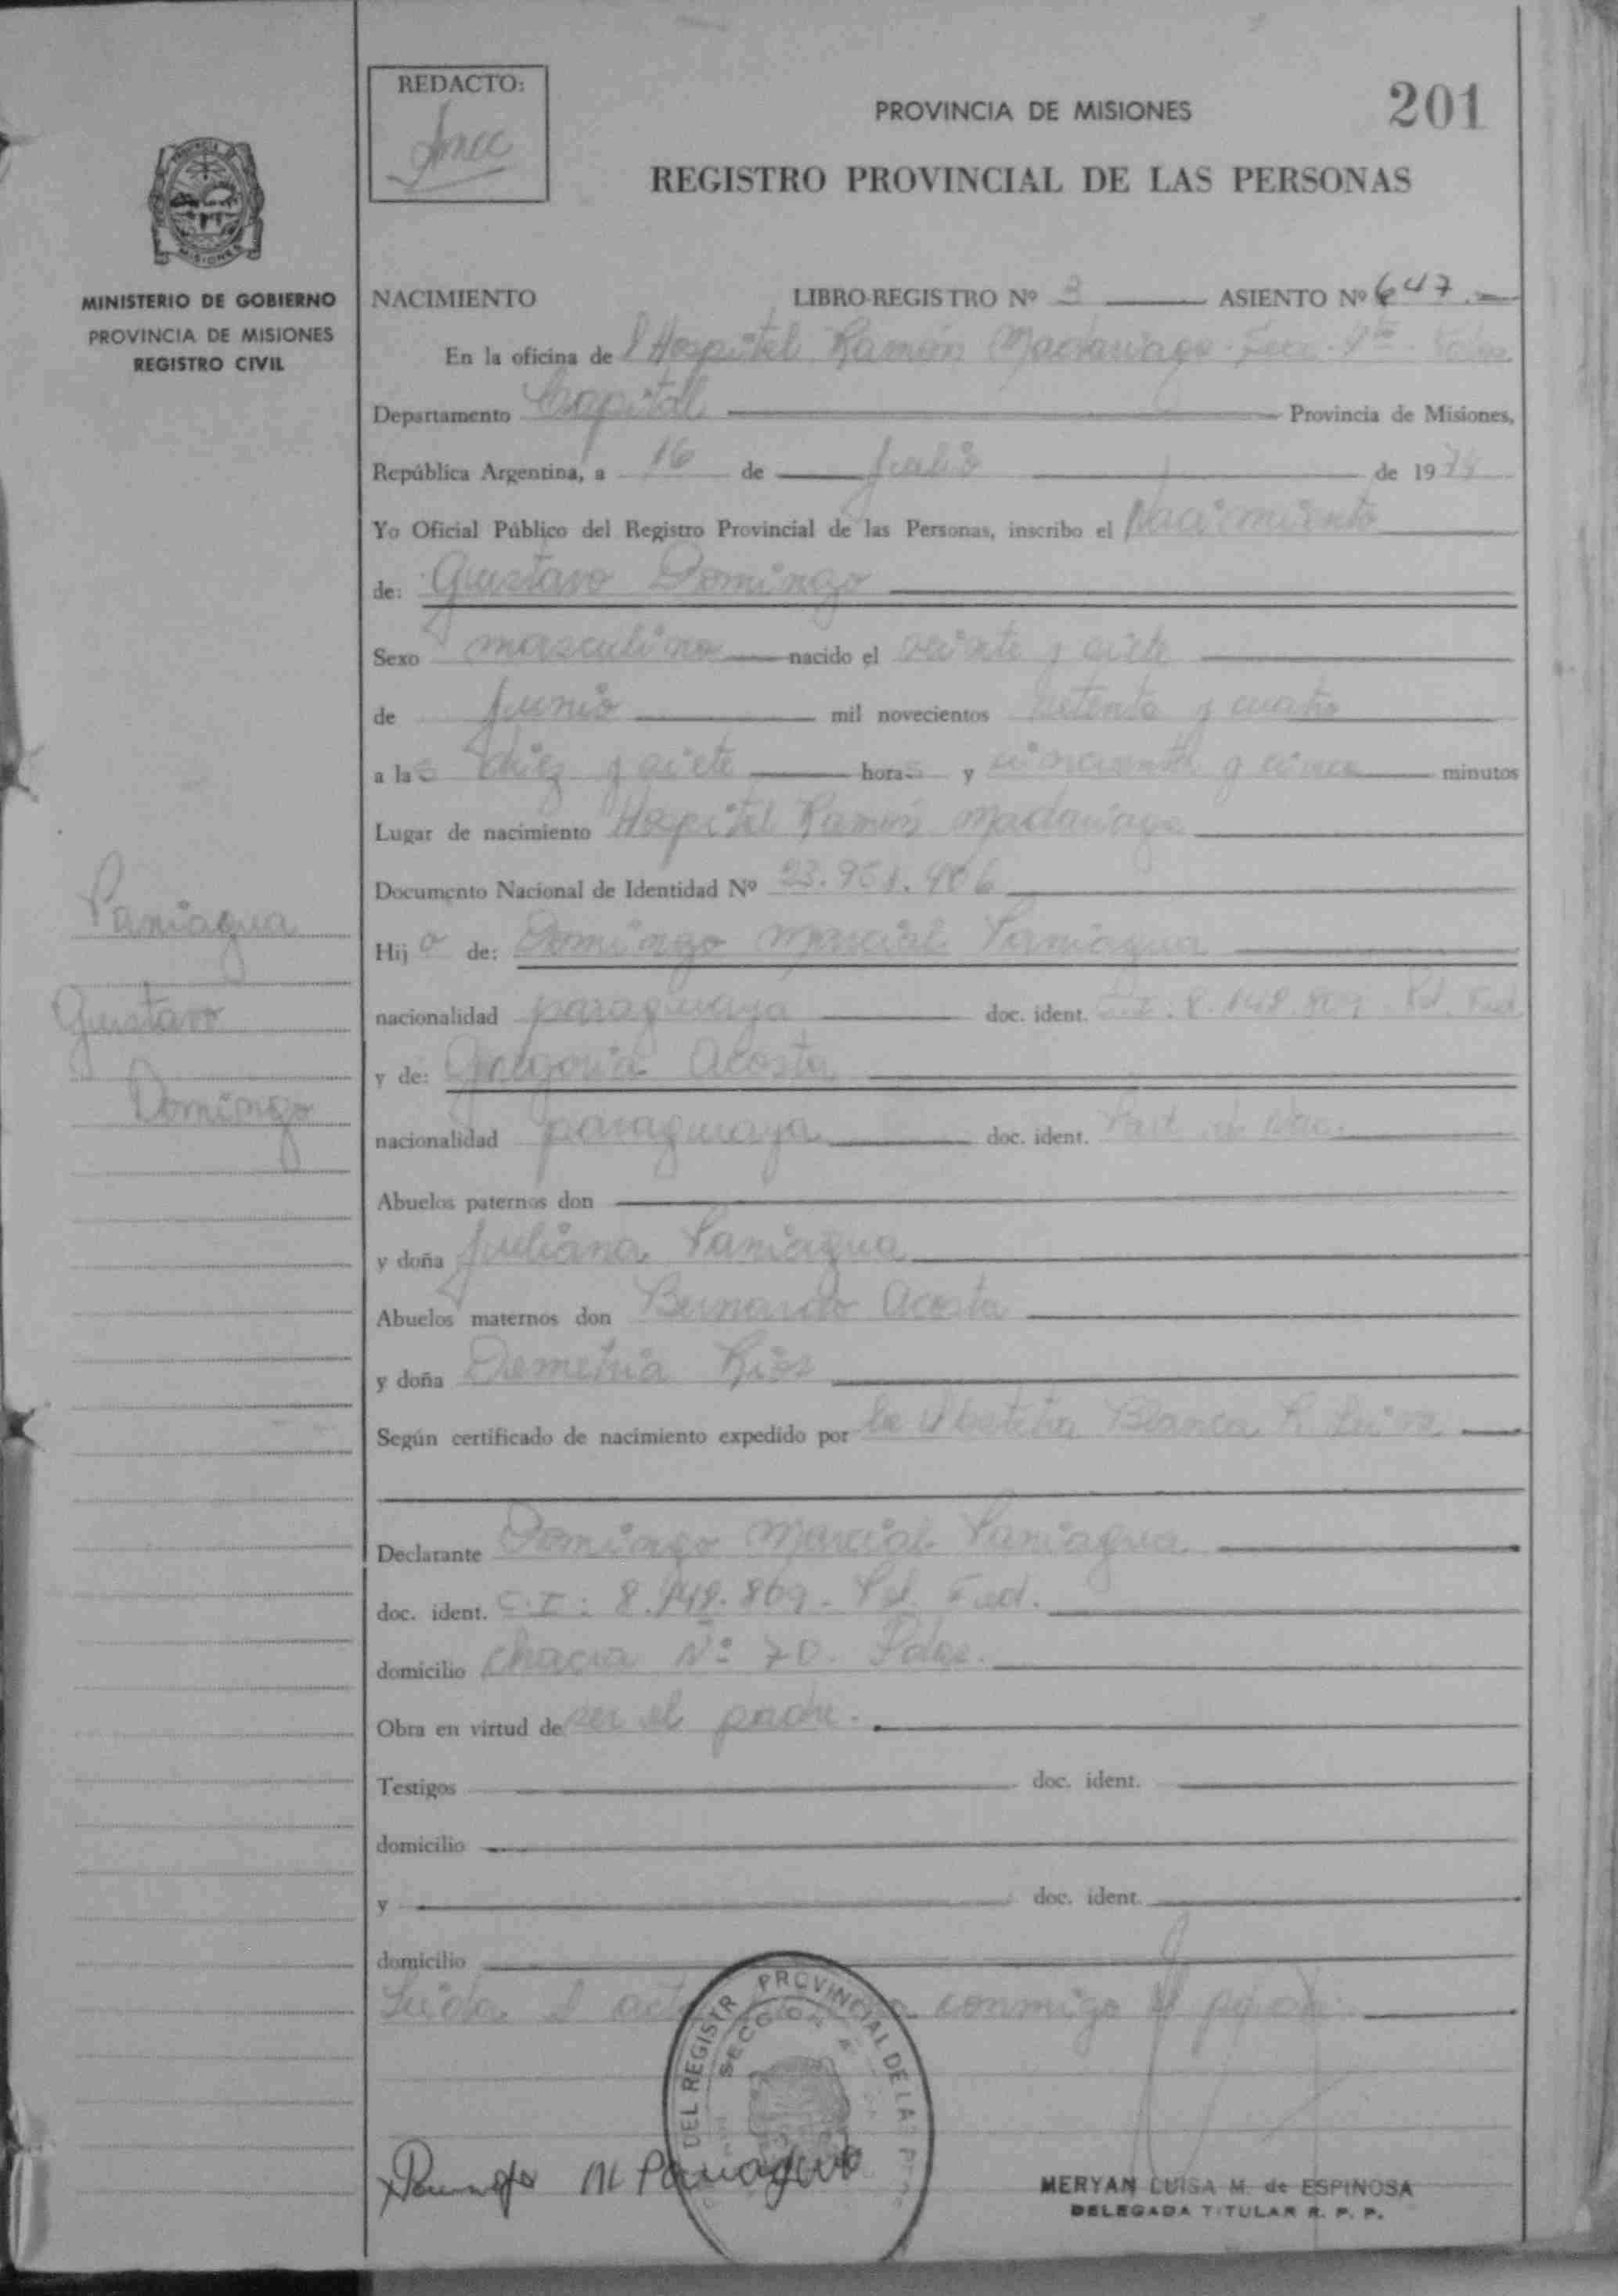 REDACTO:
PROVINCIA DE MISIONES
201
REGISTRO PROVINCIAL DE LAS PERSONAS
MINISTERIO DE GOBIERNO
PROVINCIA DE MISIONES
REGISTRO CIVIL
NACIMIENTO LIBRO-REGISTRO Nº 3 ASIENTO Nº 647
En la oficina de l Hospital Ramón Madariaga
Departamento Capital Provincia de Misiones,
República Argentina, a 16 de Julio de 1974
Yo Oficial Público del Registro Provincial de las Personas, inscribo el Nacimiento
de: Gustavo Domingo
Sexo masculino nacido el veinte y siete
de Junio mil novecientos setenta y cuatro
a las diez y siete horas y cincuenta y cinco minutos
Lugar de nacimiento Hospital Ramón Madariaga
Documento Nacional de Identidad Nº
Paniagua
Gustavo
Domingo
Hijo de: Domingo Marcial Paniagua
nacionalidad paraguaya doc. ident. C.I: 8.148.809 - Pol. Fed
y de: Gregoria Acosta
nacionalidad paraguaya doc. ident. Part. de Nac.
Abuelos paternos don
y doña Juliana Paniagua
Abuelos maternos don Bernardo Acosta
y doña Demetria Rios
Según certificado de nacimiento expedido por la Obstetra Blanca R.
Declarante Domingo Marcial Paniagua
doc. ident. C.I: 8.148.809 - Pol. Fed.
domicilio Chacra Nº 70. Pdas.
Obra en virtud de ser el padre.
Testigos doc. ident.
domicilio
y doc. ident.
domicilio
Leida el acta conmigo el padre.
DEL REGISTR PROVINCIAL DE LAS
SECCION
Domingo M Paniagua
MERYAN LUISA M. de ESPINOSA
DELEGADA TITULAR R. P. P.